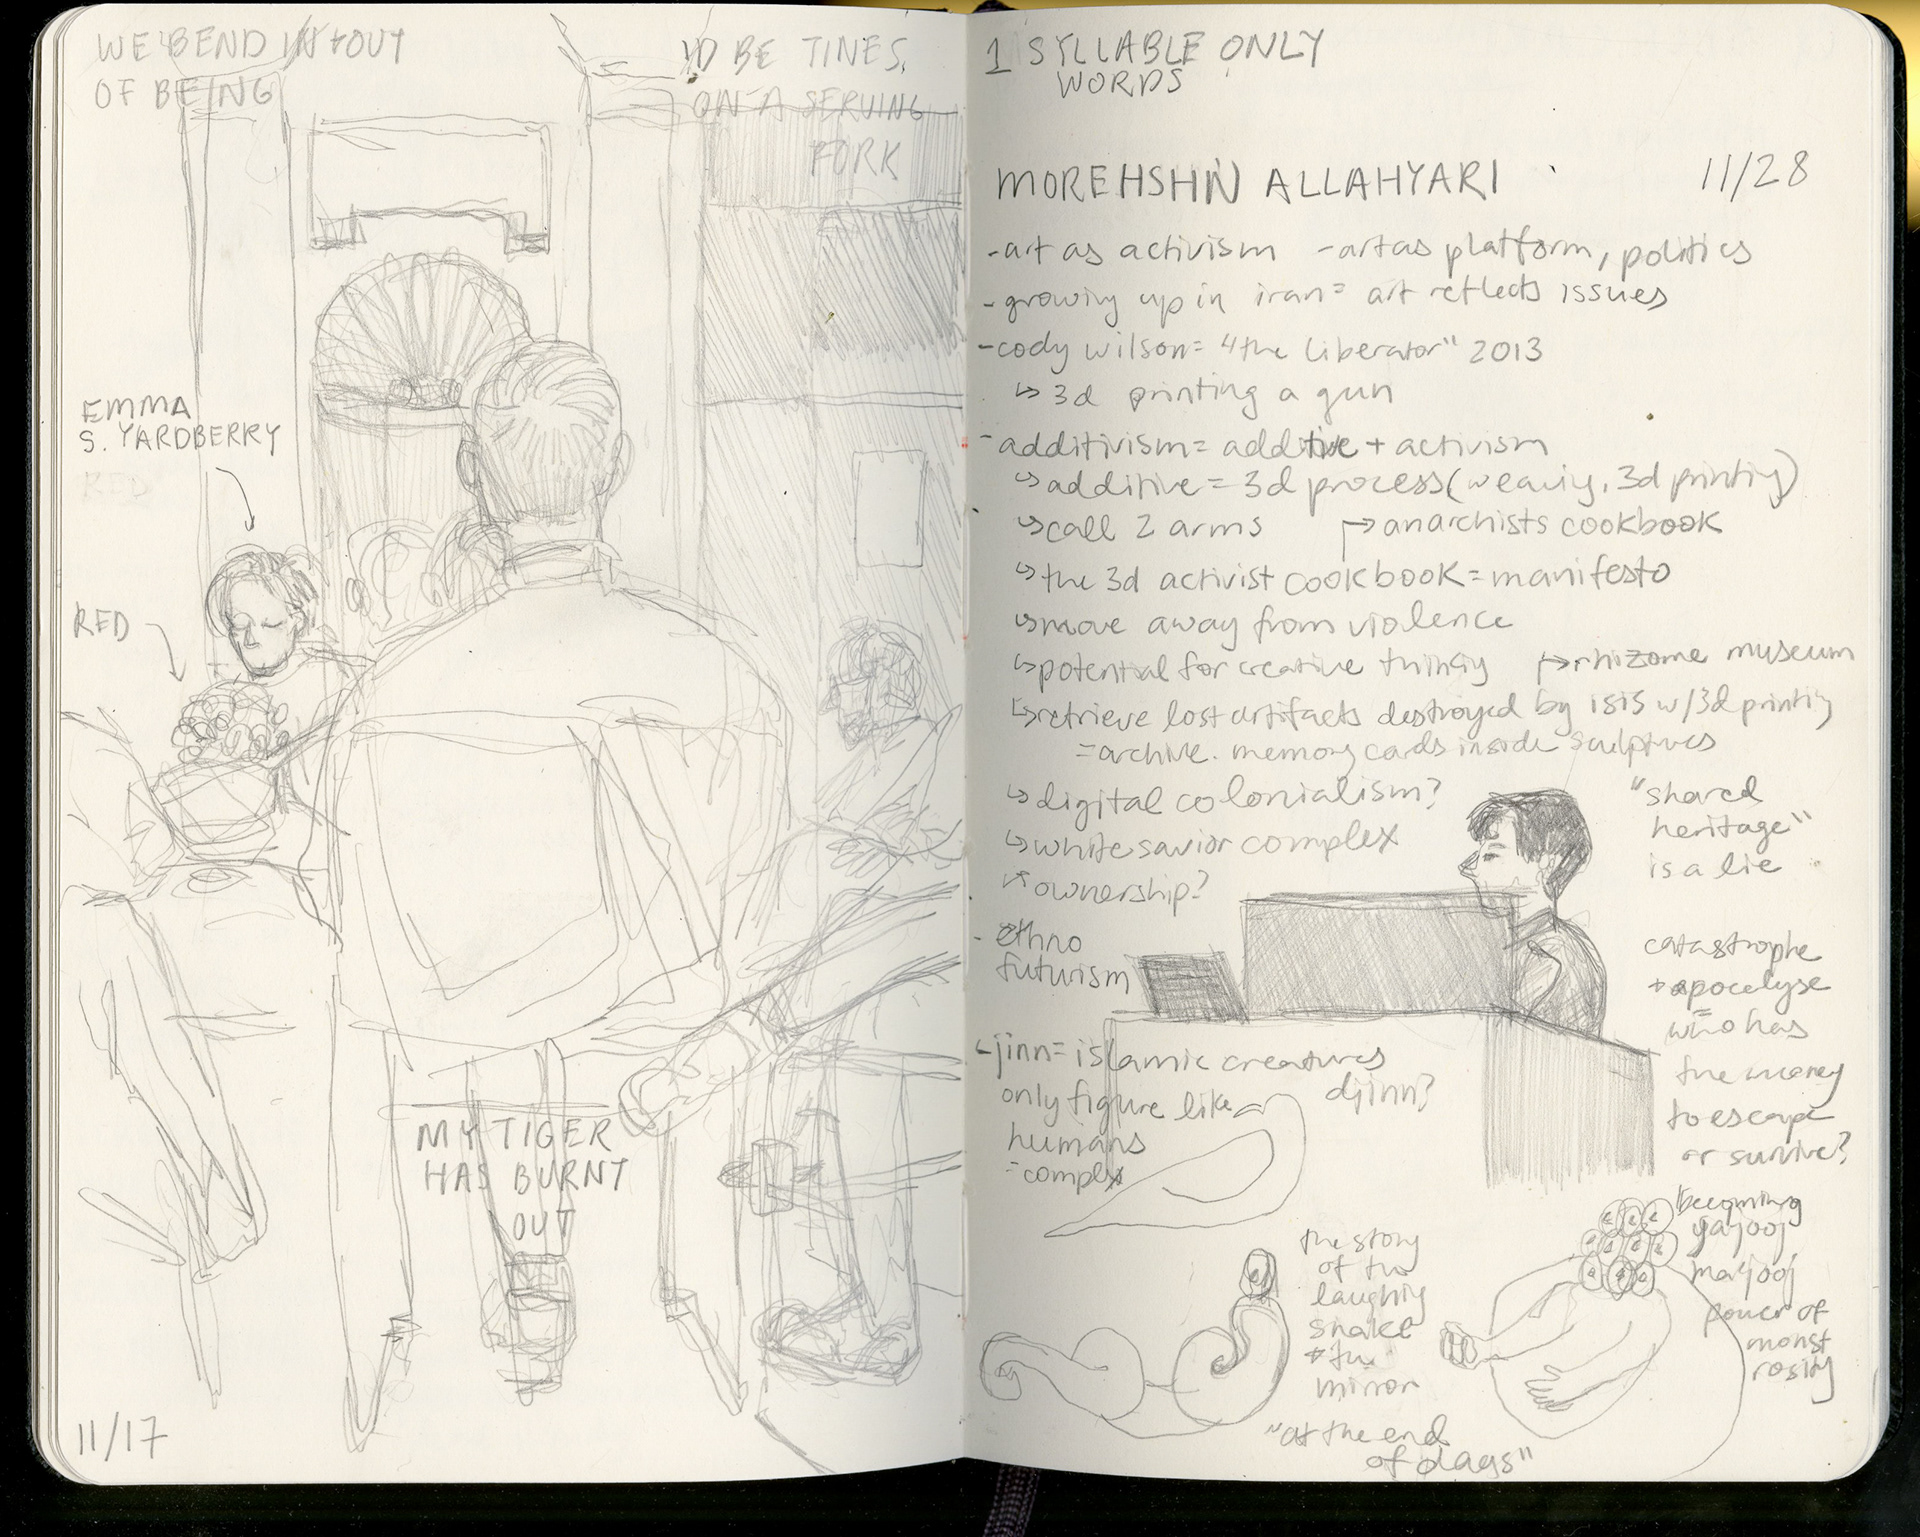 WE BEND IN + OUT
OF BEING
I'D BE TINES
ON A SERVING
FORK
EMMA
S. YARDBERRY
RED
RED
MY TIGER
HAS BURNT
OUT
11/17
1 SYLLABLE ONLY
WORDS
MOREHSHIN ALLAHYARI 11/28
- art as activism - art as platform, politics
- growing up in iran = art reflects issues
- cody wilson = "the liberator" 2013
↳ 3d printing a gun
- additivism = additive + activism
↳ additive = 3d process (weaving, 3d printing)
↳ call 2 arms ↱ anarchists cookbook
↳ the 3d activist cookbook = manifesto
↳ move away from violence
↳ potential for creative thinking ↱ rhizome museum
↳ retrieve lost artifacts destroyed by isis w/3d printing
= archive. memory cards inside sculptures
↳ digital colonialism?
↳ white savior complex
ownership?
"shared
heritage"
is a lie
- ethno
futurism
catastrophe
+ apocelyse
who has
the money
to escape
or survive?
jinn = islamic creatures
djinn?
only figure like
humans
= complex
becoming
yajooj
majooj
power of
monst
rosity
the story
of the
laughing
snake
+ the
mirror
"at the end
of days"